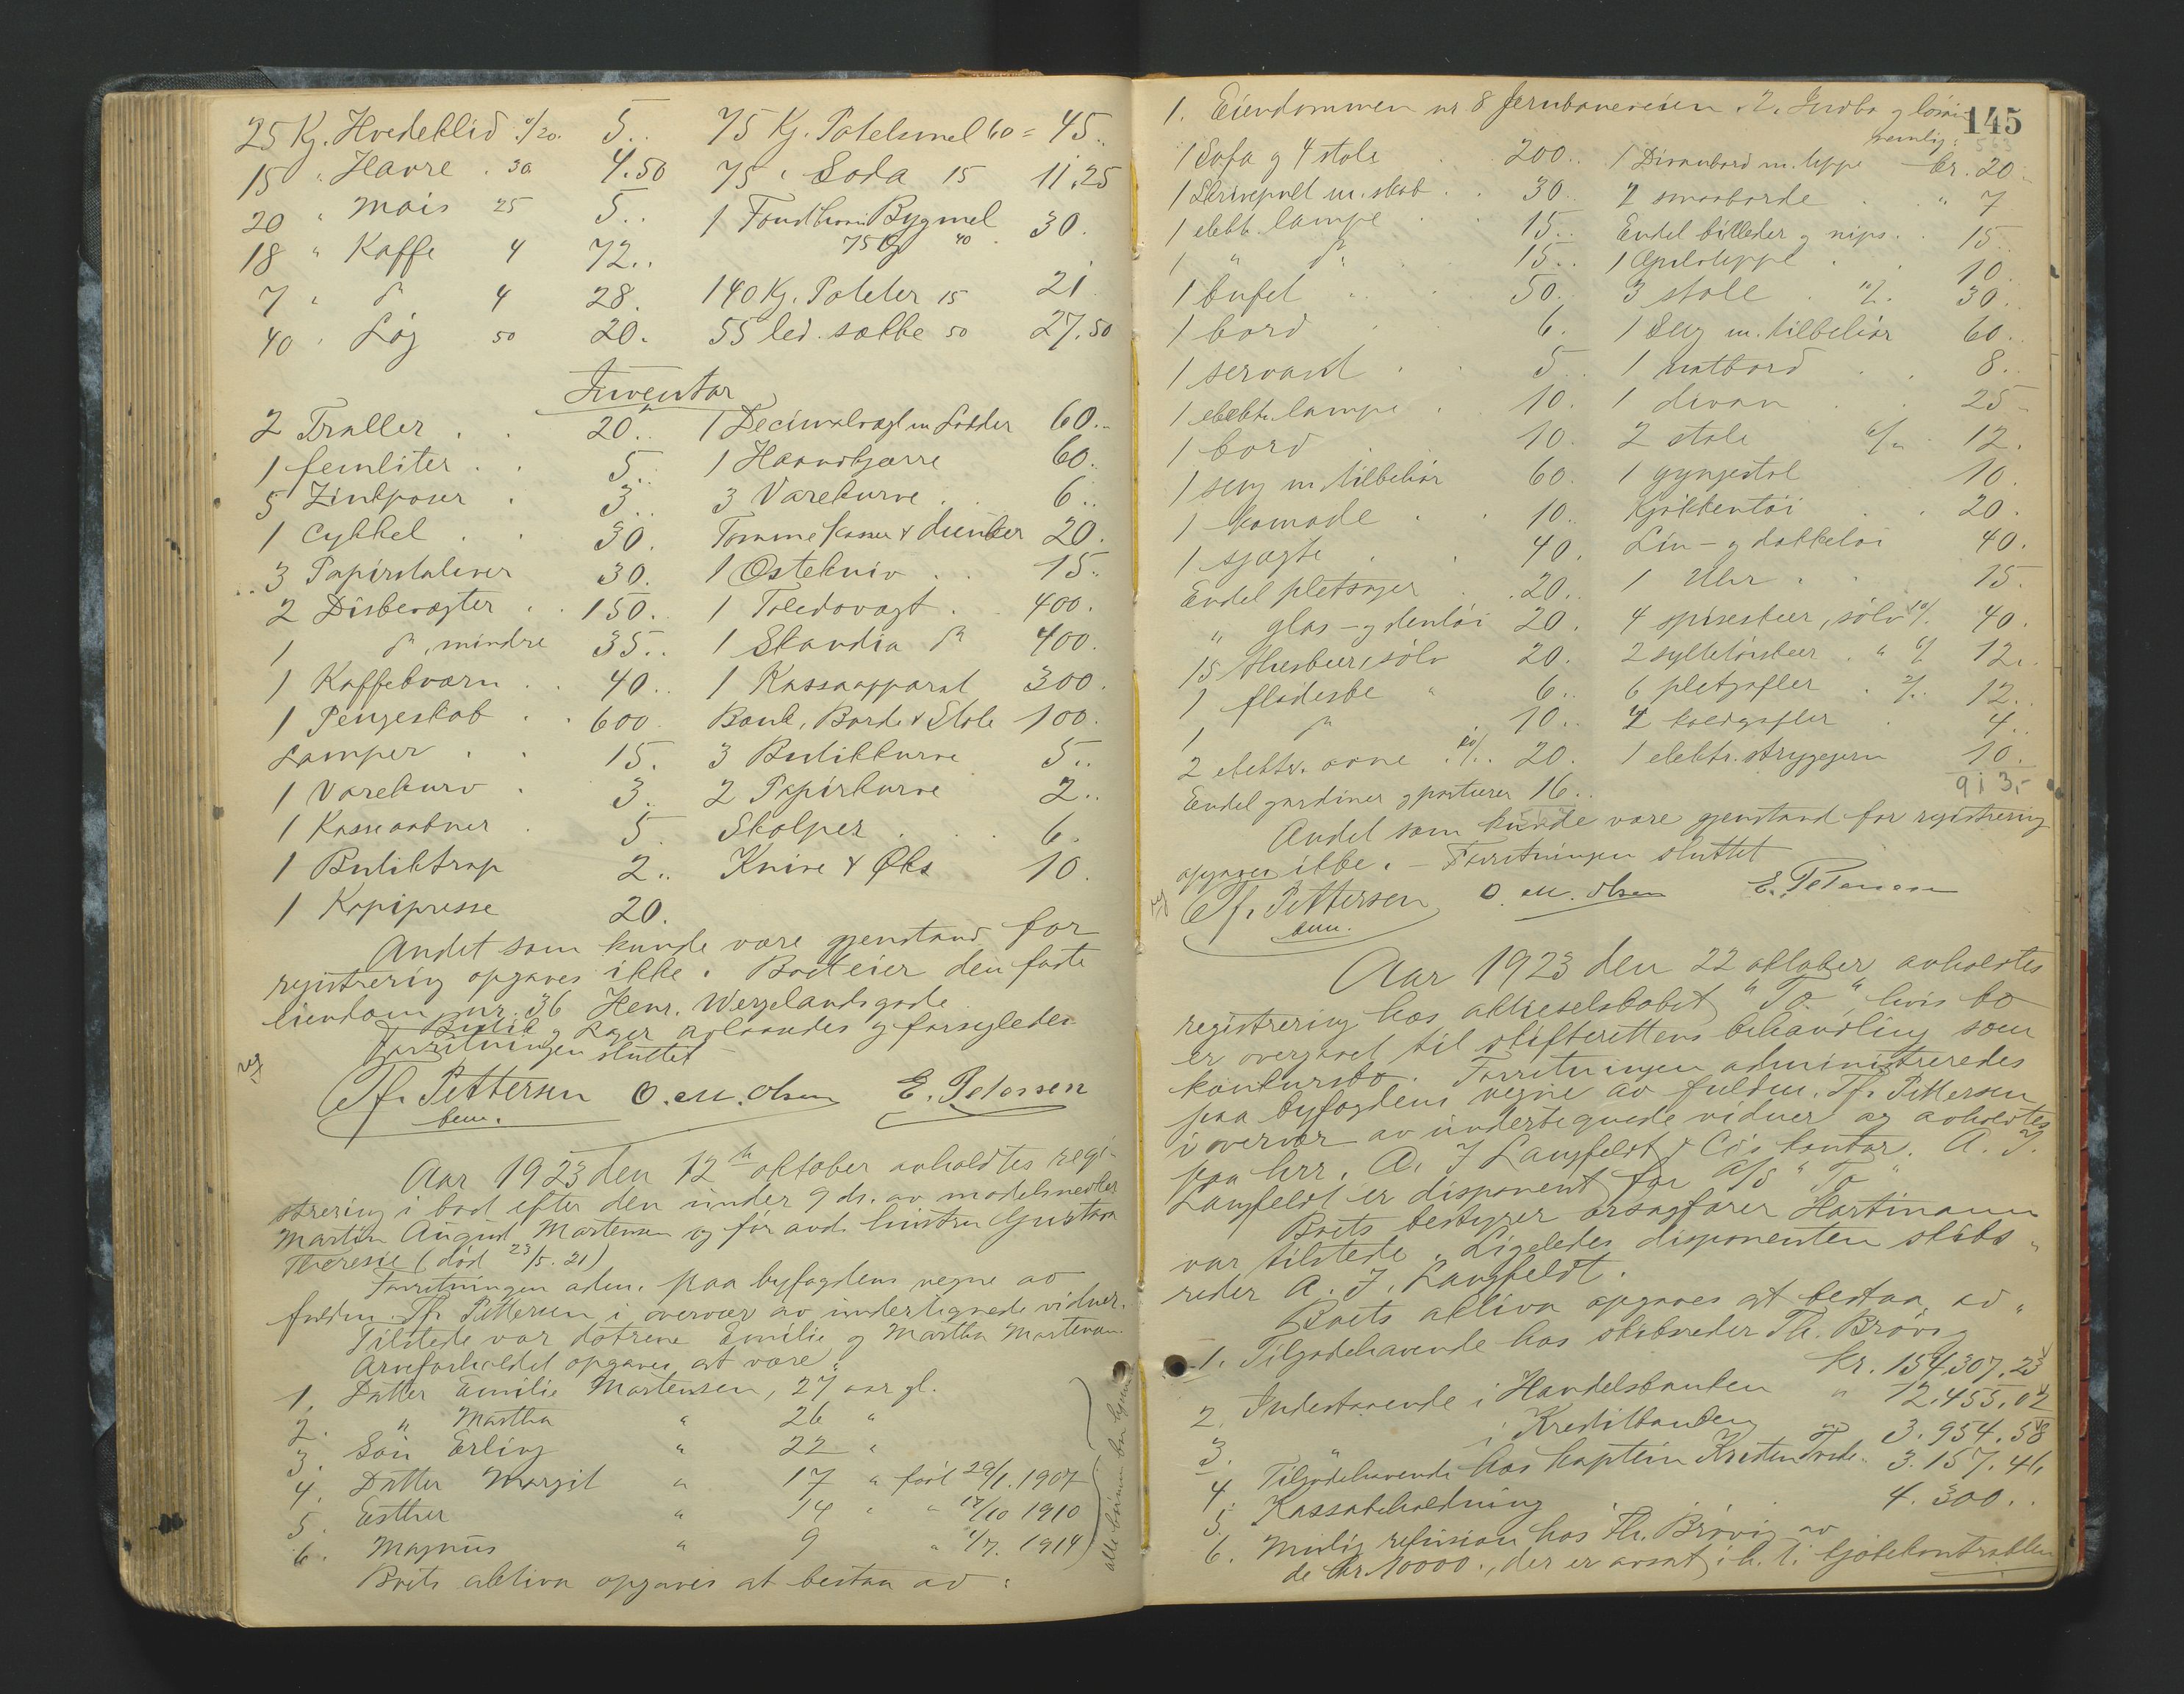 25 Kg. Hvedeklid a/20. 5.. 75 Kg. Potetsmel 60 = 45..
15 " Havre . 30 4.50 75 " Soda 15 11.25
20 " Mais 25 5.. 1 Bygmel 30.
18 " Kaffe 4 72.. 75 Kg 40
7 " do 4 28. 140 Kg. Poteter 15 21.
40 " Løg 50 20. 55 led. sække 50 27.50
Inventar
2 Traller . . 20.. 1 Decimalvægt m Lodder 60..
1 femliter . . 5.. 1 Haandkjærre 60.
5 Zinkposer . 3.. 3 Varekurve . 6..
1 Cykkel . . 30. Tomme kasser & dunker 20.
3 Papirstativer 30. 1 Ostekniv . . 15..
2 Diskevægter . . 150. 1 Toledovægt . . 400.
1 do, mindre 35.. 1 Skandia do 400.
1 Kaffekværn . . 40.. 1 Kassaapparat 300.
1 Pengeskab . . 600. Bænk, Borde & Stole 100.
Lamper . . 15. 3 Butikkurve 5..
1 Varekurv . 3. 2 Papirkurve 2..
1 Kasseaabner . 5. Skolper . . . 6.
1 Butiktrap 2.. Knive & Øks 10.
1 Kopipresse 20.
Andet som kunde være gjenstand for
registrering opgaves ikke. Boet eier den faste
eiendom nr. 36 Henr. Wergelandsgade.
Butik og Lager avlaasedes og forsegledes
Forretningen sluttet
Tf. Pettersen O. M. Olsen E. Petersen
bem.
Aar 1923 den 12te oktober avholdtes regi-
strering i boet efter den under 9 ds. av modelsnedker
Martin August Martensen og før avd. hustru Gustava
Theresie (død 23/5. 21)
Forretningen adm. paa byfogdens vegne av
fuldm. Tf. Pettersen i overvær av undertegnede vidner.
Tilstede var døtrene Emilie og Martha Martensen.
Arveforholdet opgaves at være:
1. Datter Emilie Martensen, 27 aar gl.
2. " Martha " 26 "
3. Søn Erling " 22 "
4. Datter Margit " 17 " født 29/1. 1907
5. Esther " 14 " " 17/10 1910
6. Magnus " 9 " 4/7. 1914
Boets aktiva opgaves at bestaa av:
145
1. Eiendommen nr 8 Jernbaneveien. 2. Indbo og løsøre
nemlig:
1 Sofa og 4 stole 200.. 1 Divanbord m. teppe kr. 20.
1 Skrivepult m. skab . . 30. 2 smaaborde . " 7
1 elekt. lampe . . 15.. Endel billeder og nips . . 15..
1 " do . 15.. 1 Gulvteppe . . 10.
1 bufet . . 50. 3 stole . 10/. 30..
1 bord . 6. 1 Seng m. tilbehør 60.
1 servant . . 5.. 1 natbord . . 8..
1 elektr. lampe . 10. 1 divan . . 25
1 bord . 10. 2 stole 6/. 12.
1 seng m tilbehør 60. 1 gyngestol 10.
1 komode . . 10. Kjøkkentøi . 20.
1 sjægte . . 40. Lin- og dækketøi 40.
Endel pletsager . 20.. 1 Uhr . . 15.
" glas- og stentøi 20. 4 spiseskeer, sølv 10/. 40.
15 theskeer, sølv 20. 2 syltetøiskeer . " 6/. 12..
1 flødeske " 6.. 6 pletgafler . 2/. 12..
1 do . 10.. 4 4..
2 elektr. ovne 10/. 20. 1 elektr. strygejern 10.
Endel gardiner og portierer 16.. 913,-
Andet som kunde være gjenstand for registrering
opgaves ikke. - Forretningen sluttet
Tf. Pettersen O. M. Olsen E. Petersen
bem.
Aar 1923 den 22 oktober avholdtes
registrering hos aktieselskabet "To", hvis bo
er overgaat til skifterettens behandling som
konkursbo. Forretningen administreredes
paa byfogdens vegne av fuldm. Tf. Pettersen
i overvær av undertegnede vidner og avholdtes
paa hrr. A. J Langfeldt & Co's kontor. A. J.
Langfeldt er disponent for A/S "To"
Boets bestyrer orsagfører Hartmann
var tilstede. Ligeledes disponenten skibs-
reder A. J. Langfeldt.
Boets aktiva opgaves at bestaa av:
1. Tilgodehavende hos skibsreder Th. Brøvig
kr. 154.307.23
2. Indestaaende i Handelsbanken " 12.455.02
3. " i Kreditbanken " 3.954.58
4. Tilgodehavende hos kaptein Kristen 3.157.46
5. Kassabeholdning 4.300..
6. Mulig refusion hos Th. Brøvig av
de kr. 10000., der er avsat i h. t. kjøbekontrakten